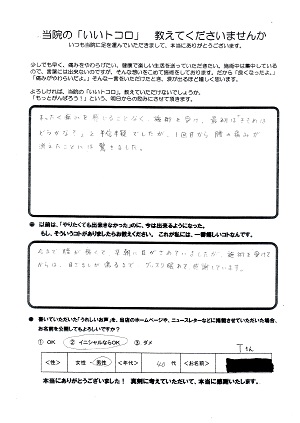 当院の「いいトコロ」 教えてくださいませんか
いつも当院に足を運んでいただきまして、本当にありがとうございます。
少しでも早く、痛みをやわらげたい。健康で楽しい生活を送っていただきたい。施術中は集中しているので、言葉には出来ないのですが、そんな想いをこめて施術をしております。だから「良くなったよ。」
「痛みがやわらいだよ。」そんな一言をいただけたとき、涙がでるほど嬉しく思います。
よろしければ、当院の「いいトコロ」、教えていただけないでしょうか。
「もっとがんばろう！」という、明日からの励みにさせて頂きます。
まったく痛みを感じることなく、施術を受け、最初は「これは
どうかな？」と半信半疑でしたが、1回目から腰の痛みが
消えたことには驚きました。
● 以前は、「やりたくても出来きなかった」のに、今は出来るようになった。
もし、そういうコトがありましたらお教えください。 これが私には、一番嬉しいコトなんです。
腰が痛くて、早朝に目がさめていましたが、施術を受けて
からは、目ざましが鳴るまで グッスリ眠れて感謝しています。
● 書いていただいた「うれしいお声」を、当店のホームページや、ニュースレターなどに掲載させていただいた場合、
お名前を公開してもよろしいですか？
① OK ② イニシャルならOK ③ ダメ
Tさん
＜性＞ 女性 ・ 男性 ＜年代＞ 40 代 ＜お名前＞
本当にありがとうございました！ 真剣に考えていただいて、本当に感謝いたします。